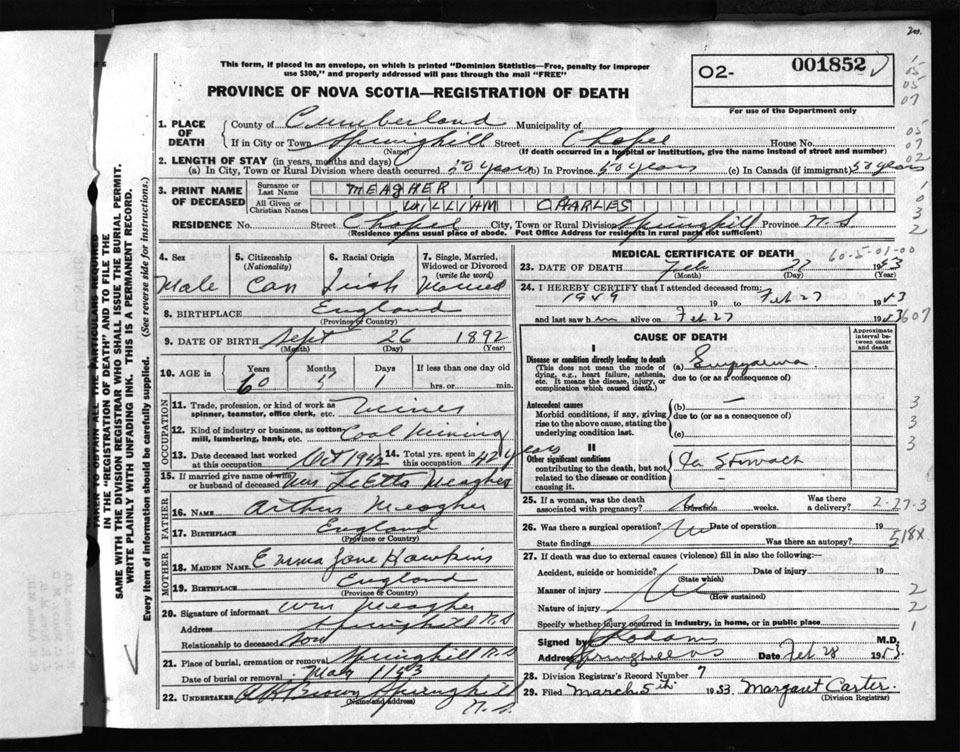 This form, if placed in an envelope, on which is printed "Dominion Statistics—Free, penalty for improper
use $300," and properly addressed will pass through the mail "FREE"
O2- 001852
For use of the Department only
PROVINCE OF NOVA SCOTIA—REGISTRATION OF DEATH
1. PLACE OF DEATH County of Cumberland Municipality of
If in City or Town Springhill Street Chapel House No.
(Name) (If death occurred in a hospital or institution, give the name instead of street and number)
2. LENGTH OF STAY (in years, months and days)
(a) In City, Town or Rural Division where death occurred 50 years (b) In Province 50 years (c) In Canada (if immigrant) 50 years
3. PRINT NAME OF DECEASED Surname or Last Name MEAGHER
All Given or Christian Names WILLIAM CHARLES
RESIDENCE No. Street Chapel City, Town or Rural Division Springhill Province N.S
(Residence means usual place of abode. Post Office Address for residents in rural parts not sufficient)
4. Sex Male
5. Citizenship (Nationality) Can
6. Racial Origin Irish
7. Single, Married, Widowed or Divorced (write the word) Married
8. BIRTHPLACE England
(Province or Country)
9. DATE OF BIRTH Sept 26 1892
(Month) (Day) (Year)
10. AGE in Years Months Days If less than one day old
60 5 1 hrs. or min.
OCCUPATION
11. Trade, profession, or kind of work as spinner, teamster, office clerk, etc. Miner
12. Kind of industry or business, as cotton-mill, lumbering, bank, etc. Coal Mining
13. Date deceased last worked at this occupation Oct
14. Total yrs. spent in this occupation 42 years
15. If married give name of wife or husband of deceased Mrs LeEtta Meagher
FATHER
16. NAME Arthur Meagher
17. BIRTHPLACE England
(Province or Country)
MOTHER
18. MAIDEN NAME Emma Jane Hawkins
19. BIRTHPLACE England
(Province or Country)
20. Signature of informant Wm Meagher
Address Springhill N.S
Relationship to deceased Son
21. Place of burial, cremation or removal Springhill N.S
Date of burial or removal Mar 1 1953
22. UNDERTAKER Brown Springhill N.S.
(Name and address)
MEDICAL CERTIFICATE OF DEATH
60-5-01-00
23. DATE OF DEATH Feb 27 1953
(Month) (Day) (Year)
24. I HEREBY CERTIFY that I attended deceased from:
1949 19 to Feb 27 1953
and last saw him alive on Feb 27 1953
CAUSE OF DEATH
Approximate interval between onset and death
I
Disease or condition directly leading to death
(This does not mean the mode of dying, e.g., heart failure, asthenia, etc. It means the disease, injury, or complication which caused death.)
(a) Empyema
due to (or as a consequence of)
Antecedent causes
Morbid conditions, if any, giving rise to the above cause, stating the underlying condition last.
(b) —
due to (or as a consequence of)
(c)
II
Other significant conditions
contributing to the death, but not related to the disease or condition causing it.
Ca Stomach
25. If a woman, was the death associated with pregnancy? Duration weeks. Was there a delivery?
26. Was there a surgical operation? No Date of operation 19
State findings Was there an autopsy?
27. If death was due to external causes (violence) fill in also the following:—
Accident, suicide or homicide? Date of injury 19
(State which)
Manner of injury
(How sustained)
Nature of injury
Specify whether injury occurred in industry, in home, or in public place
Signed by M.D.
Address Springhill NS Date Feb 28 1953
28. Division Registrar's Record Number 7
29. Filed March 5th 1953. Margaret Carter.
(Division Registrar)
IN THE "REGISTRATION OF DEATH" AND TO FILE THE
SAME WITH THE DIVISION REGISTRAR WHO SHALL ISSUE THE BURIAL PERMIT.
WRITE PLAINLY WITH UNFADING INK. THIS IS A PERMANENT RECORD.
Every item of information should be carefully supplied. (See reverse side for instructions.)